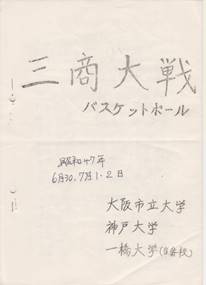 三商大戦
バスケットボール
昭和47年
6月30.7月1.2日
大阪市立大学
神戸大学
一橋大学(当番校)